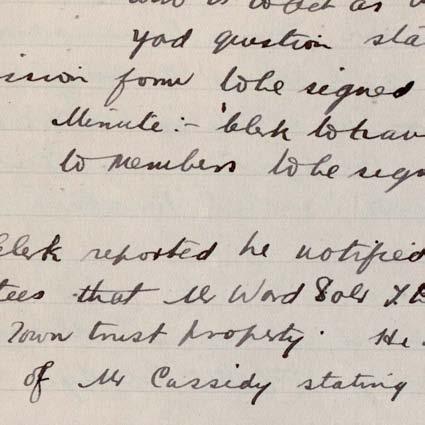 is to act as
yad question sta
ission form to be signed
Minute:- Clerk to hav
to members to be sign
Clerk reported he notified
tees that Mr Ward Solr
Town trust property. He
of Mr Cassidy stating